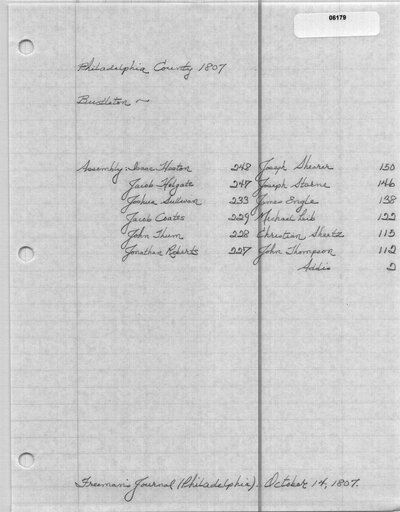 06179
Philadelphia County 1807
Bustleton ~
Assembly: Isaac Heston 248 Joseph Shearer 150
Jacob Holgate 247 Joseph Starne 146
Joshua Sullivan 233 James Engle 138
Jacob Coates 229 Michael Leib 122
John Thum 228 Christian Sheetz 115
Jonathan Roberts 227 John Thompson 112
Addis 2
Freeman's Journal (Philadelphia). October 14, 1807.